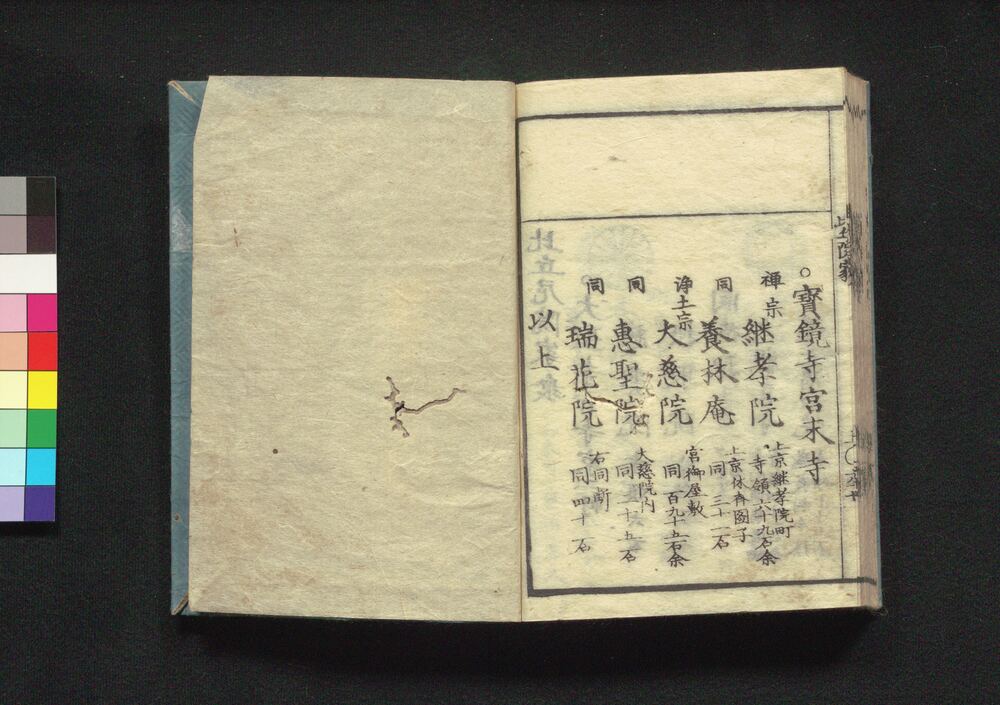 ○寶鏡寺宮末寺
禅宗 継孝院 上京継孝院町
寺領六十九石余
同 養林庵 上京休斉図子
同三十一石
浄土宗 大慈院 宮御屋敷
同百九十五石余
同 惠聖院 大慈院内
同二十五石
同 瑞花院 右同断
同四十石
以上